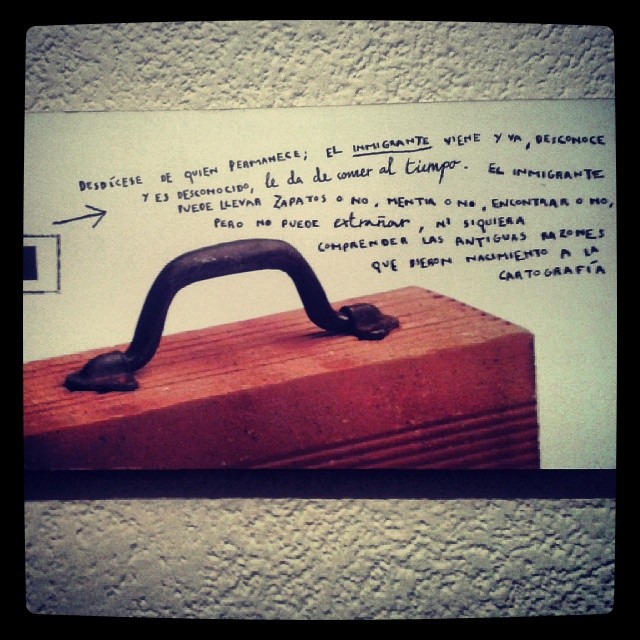 DESDÍCESE DE QUIEN PERMANECE; EL INMIGRANTE VIENE Y VA, DESCONOCE
Y ES DESCONOCIDO, le da de comer al tiempo. EL INMIGRANTE
PUEDE LLEVAR ZAPATOS O NO, MENTIR O NO, ENCONTRAR O NO,
PERO NO PUEDE extrañar, NI SIQUIERA
COMPRENDER LAS ANTIGUAS RAZONES
QUE DIERON NACIMIENTO A LA
CARTOGRAFÍA